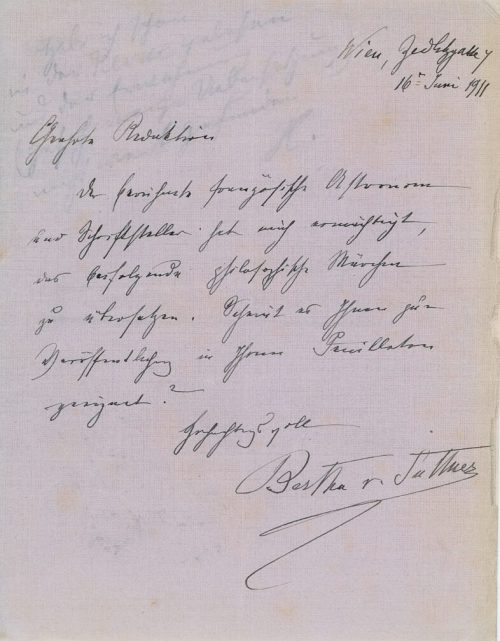 Wien, Zedlitzgasse 7
16t Juni 1911
Geehrte Redaktion
Der berühmte französische Astronom
und Schriftsteller hat mich ermächtigt,
das beifolgende philosophische Märchen
zu übersetzen. Scheint es Ihnen zur
Veröffentlichung in Ihrem Feuilleton
geeignet?
Hochachtungsvoll
Bertha v. Suttner